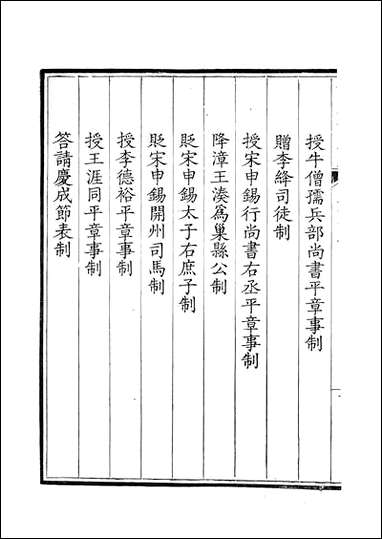 授牛僧孺兵部尚書平章事制
贈李絳司徒制
授宋申錫行尚書右丞平章事制
降漳王湊為巢縣公制
貶宋申錫太子右庶子制
貶宋申錫開州司馬制
授李德裕平章事制
授王涯同平章事制
答請慶成節表制